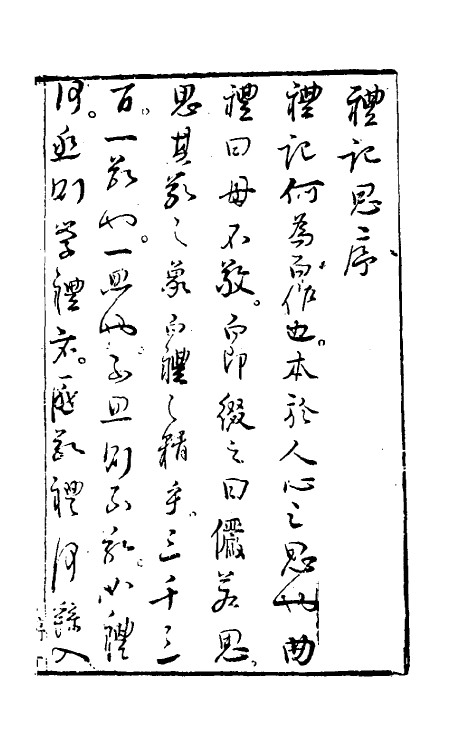 禮記思序
禮記何為而作也。本於人心之思也曲
禮曰毋不敬。而即綴之曰儼若思。
思其敬之象而禮之精乎。三千三
百。一敬也。一思也。不思則不敬。
則學禮者。
禮何繇入